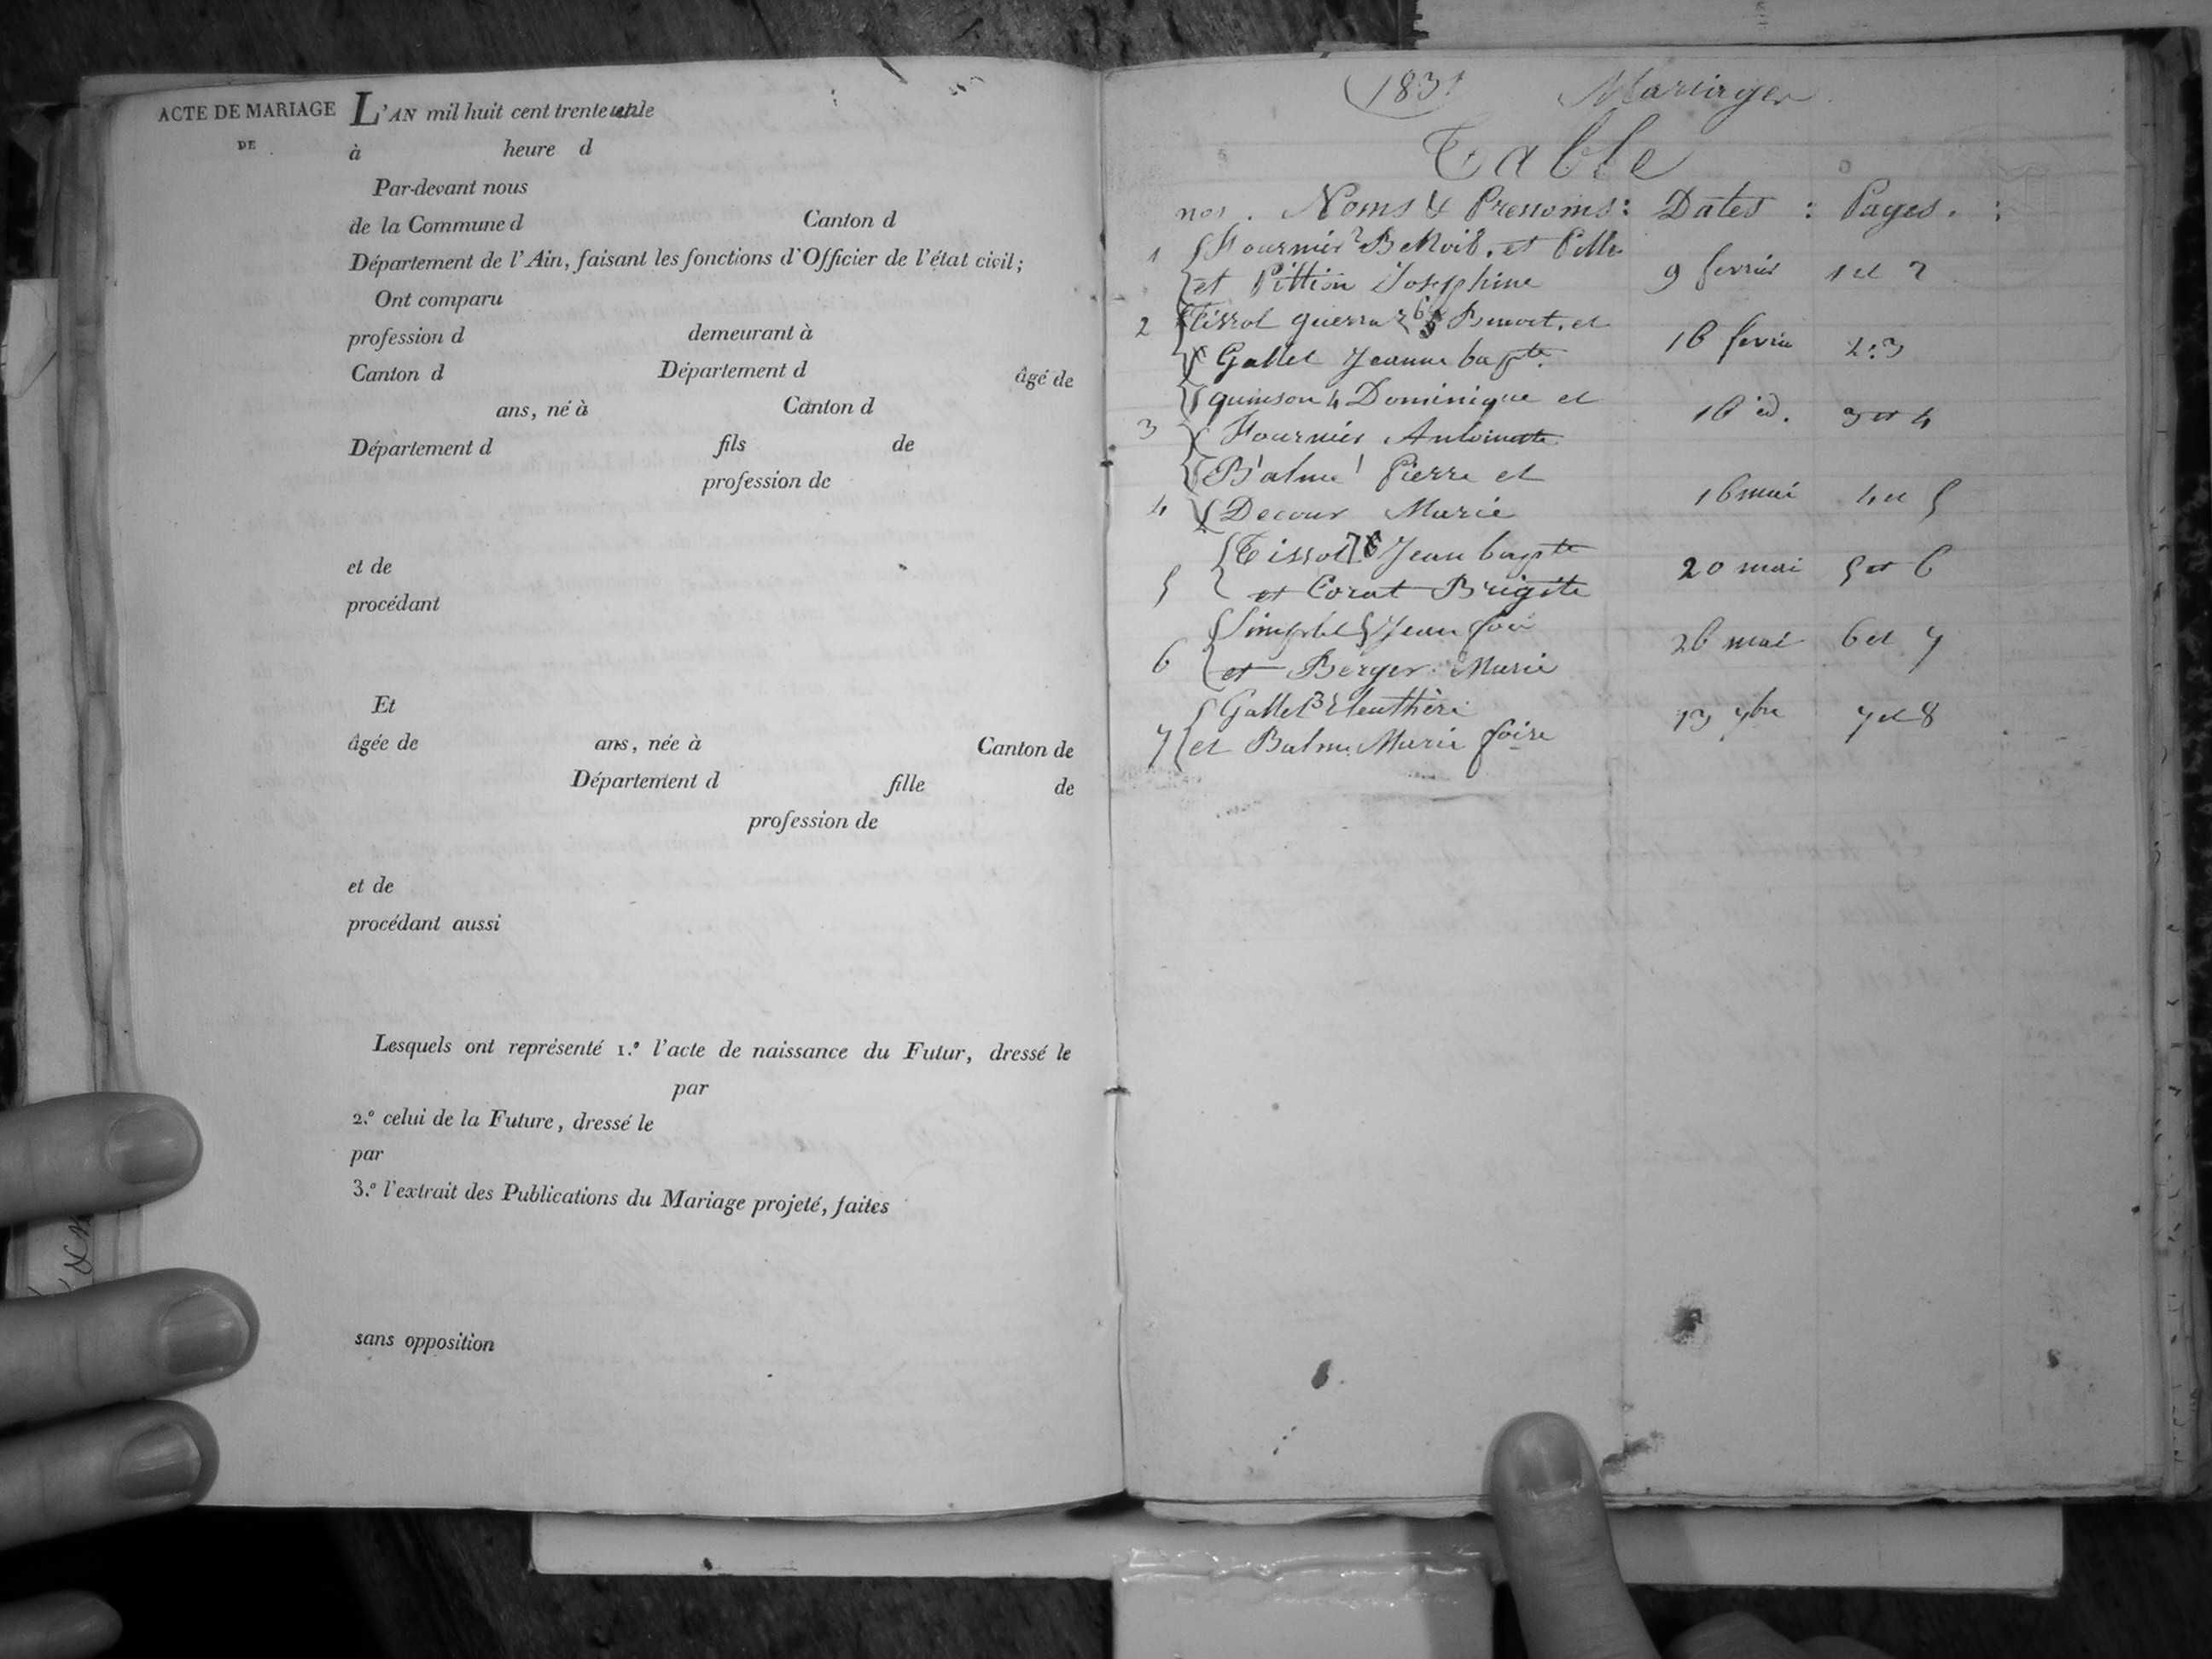 ACTE DE MARIAGE
DE
L'AN mil huit cent trente
à heure d
Par-devant nous
de la Commune d Canton d
Département de l'Ain, faisant les fonctions d'Officier de l'état civil;
Ont comparu
profession d demeurant à
Canton d Département d âgé de
ans, né à Canton d
Département d fils de
profession de
et de
procédant
Et
âgée de ans, née à Canton de
Département d fille de
profession de
et de
procédant aussi
Lesquels ont représenté 1.º l'acte de naissance du Futur, dressé le
par
2.º celui de la Future, dressé le
par
3.º l'extrait des Publications du Mariage projeté, faites
sans opposition
1831 Mariages
Table
nos. Noms & Prenoms: Dates : Pages. :
1 Fournier 2 Benoit. et
et Pittion Josephine 9 fevrier 1 et 2
2 Tissot guerraz 6 Benoit. et
Gallet Jeanne bapte. 16 fevrier 2:3
quinson 4 Dominique et
3 Fournier Antoinette 16 id. 3 et 4
Balme 1 Pierre et
4 Decour Marie 16 mai 4 et 5
Tissot 7 Jean bapte
5 et Corat Brigite 20 mai 5 et 6
5 Jean
6 et Berger Marie 26 mai 6 et 7
Gallet 3 Eleuthère
7 et Balme Marie 13 7bre 7 et 8